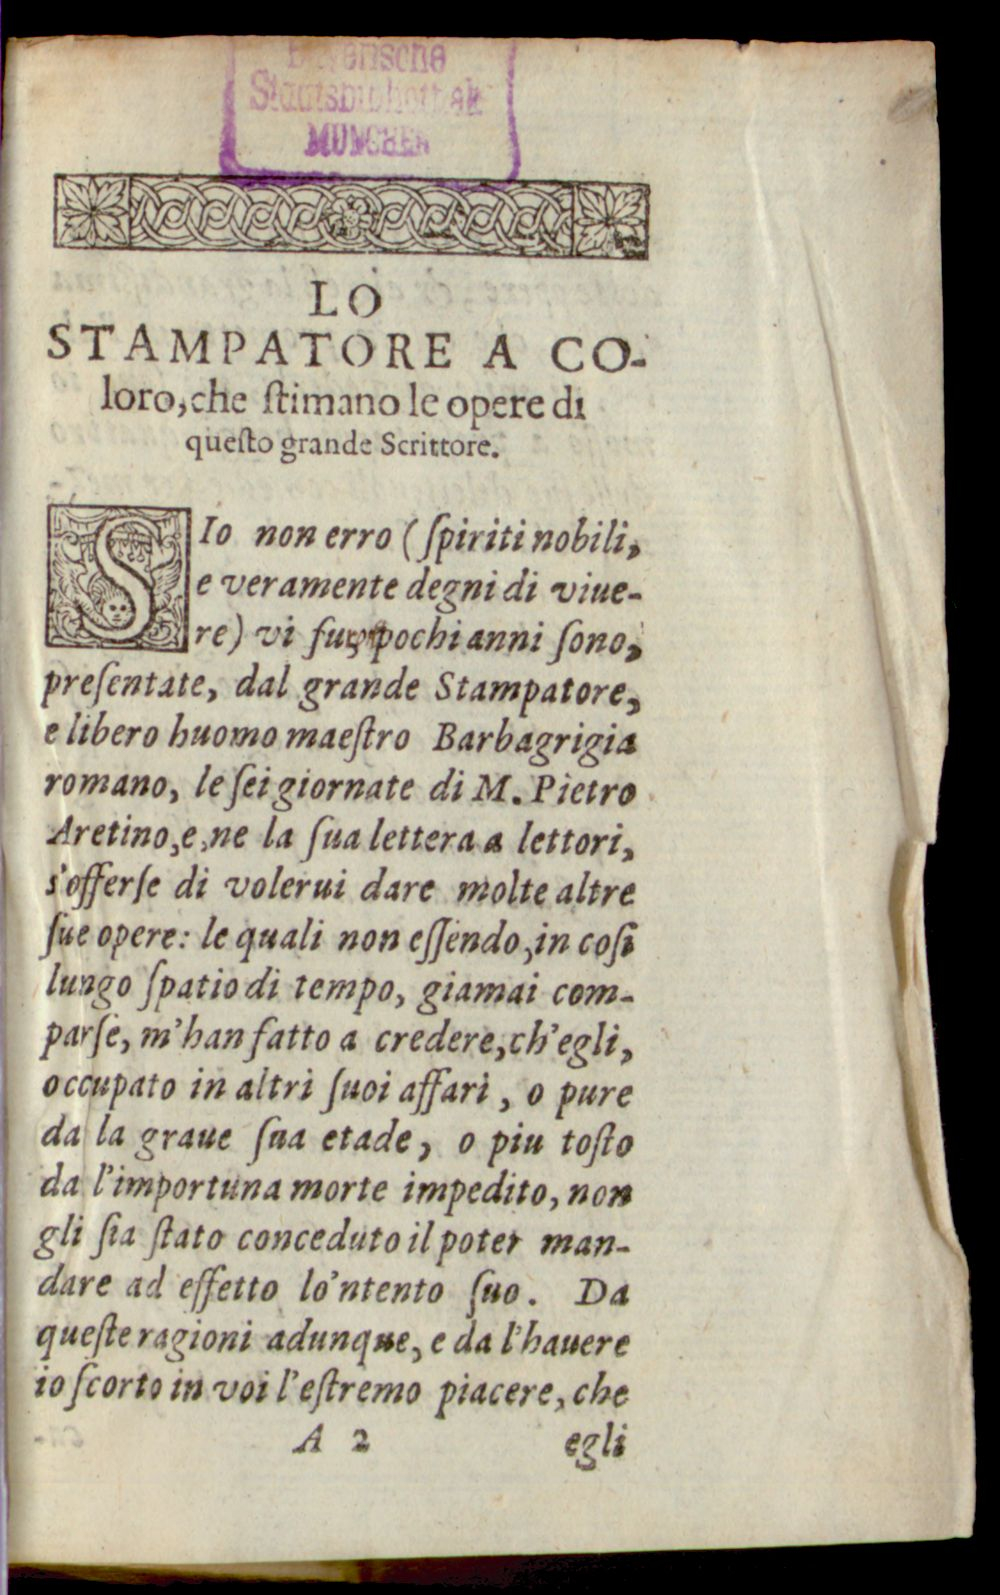 Bayerische
Staatsbibliothek
MÜNCHEN
LO
STAMPATORE A CO-
loro, che ſtimano le opere di
queſto grande Scrittore.
SIo non erro (ſpiriti nobili,
e veramente degni di viue-
re) vi fur, pochi anni ſono,
preſentate, dal grande Stampatore,
e libero huomo maeſtro Barbagrigia
romano, le ſei giornate di M. Pietro
Aretino, e, ne la ſua lettera a lettori,
s'offerſe di volerui dare molte altre
ſue opere: le quali non eſſendo, in coſi
lungo ſpatio di tempo, giamai com-
parſe, m'han fatto a credere, ch'egli,
occupato in altri ſuoi affari, o pure
da la graue ſua etade, o piu toſto
da l'importuna morte impedito, non
gli ſia ſtato conceduto il poter man-
dare ad effetto lo'ntento ſuo. Da
queſte ragioni adunque, e da l'hauere
io ſcorto in voi l'eſtremo piacere, che
A 2 egli